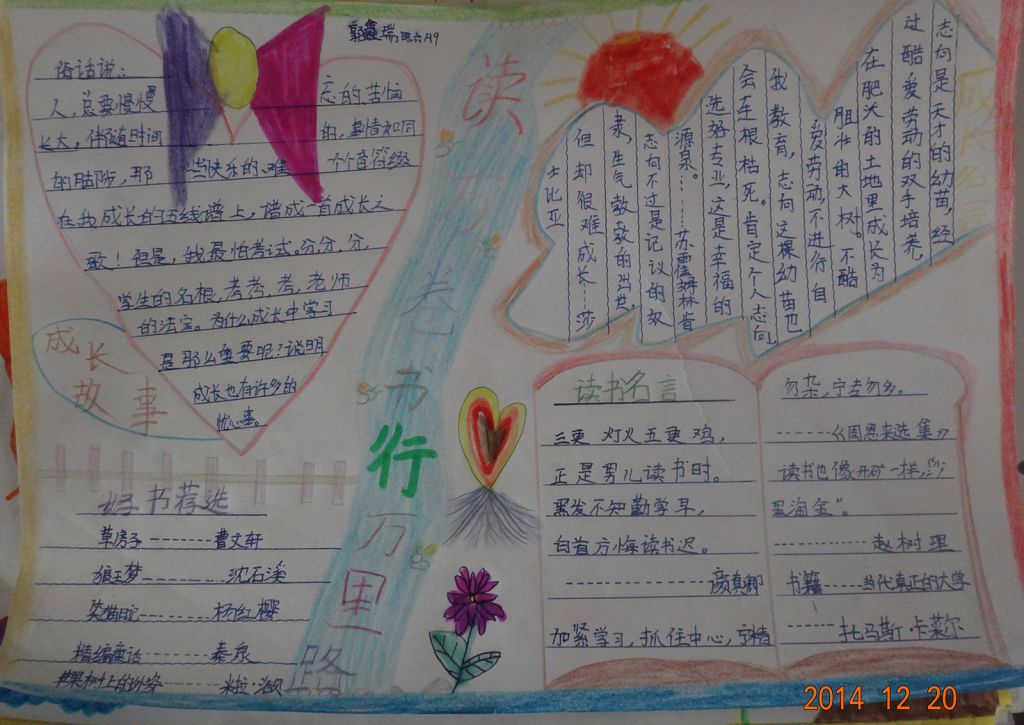 郭鑫瑞,四.六月9
俗话说:
人,总要慢慢
长大,伴随时间
的脚步,那
些快乐的、难
忘的、苦恼
的,事情如同
个个音符缀
在我成长的五线谱上,谱成一首成长之
歌!但是,我最怕考试。分,分,分,
学生的名根,考,考,考,老师
的法宝。为什么成长中学习
是那么重要呢?说明
成长也有许多的
忧心事。
成长
故事
好书荐选
草房子--------曹文轩
狼王梦--------沈石溪
笑猫日记------杨红樱
精编童话------秦泉
苹果树上的外婆------米拉·洛贝
读万卷书行万里路
成长名言
志向是天才的幼苗,经
过酷爱劳动的双手培养,
在肥沃的土地里成长为
粗壮的大树。不酷
爱劳动,不进行自
我教育,志向这棵幼苗也
会连根枯死。肯定个人志向,
选好专业,这是幸福的
源泉。------苏霍姆林肯
志向不过是记忆的奴
隶,生气勃勃的
但却很难成长---莎
士比亚
读书名言
三更灯火五更鸡,
正是男儿读书时。
黑发不知勤学早,
白首方悔读书迟。
------------颜真卿
加紧学习,抓住中心,宁精
勿杂,宁专勿多。
-------《周恩来选集》
读书也像开矿一样,沙
里淘金”。
---------赵树理
书籍-----当代真正的大学
------托马斯·卡莱尔
2014 12 20